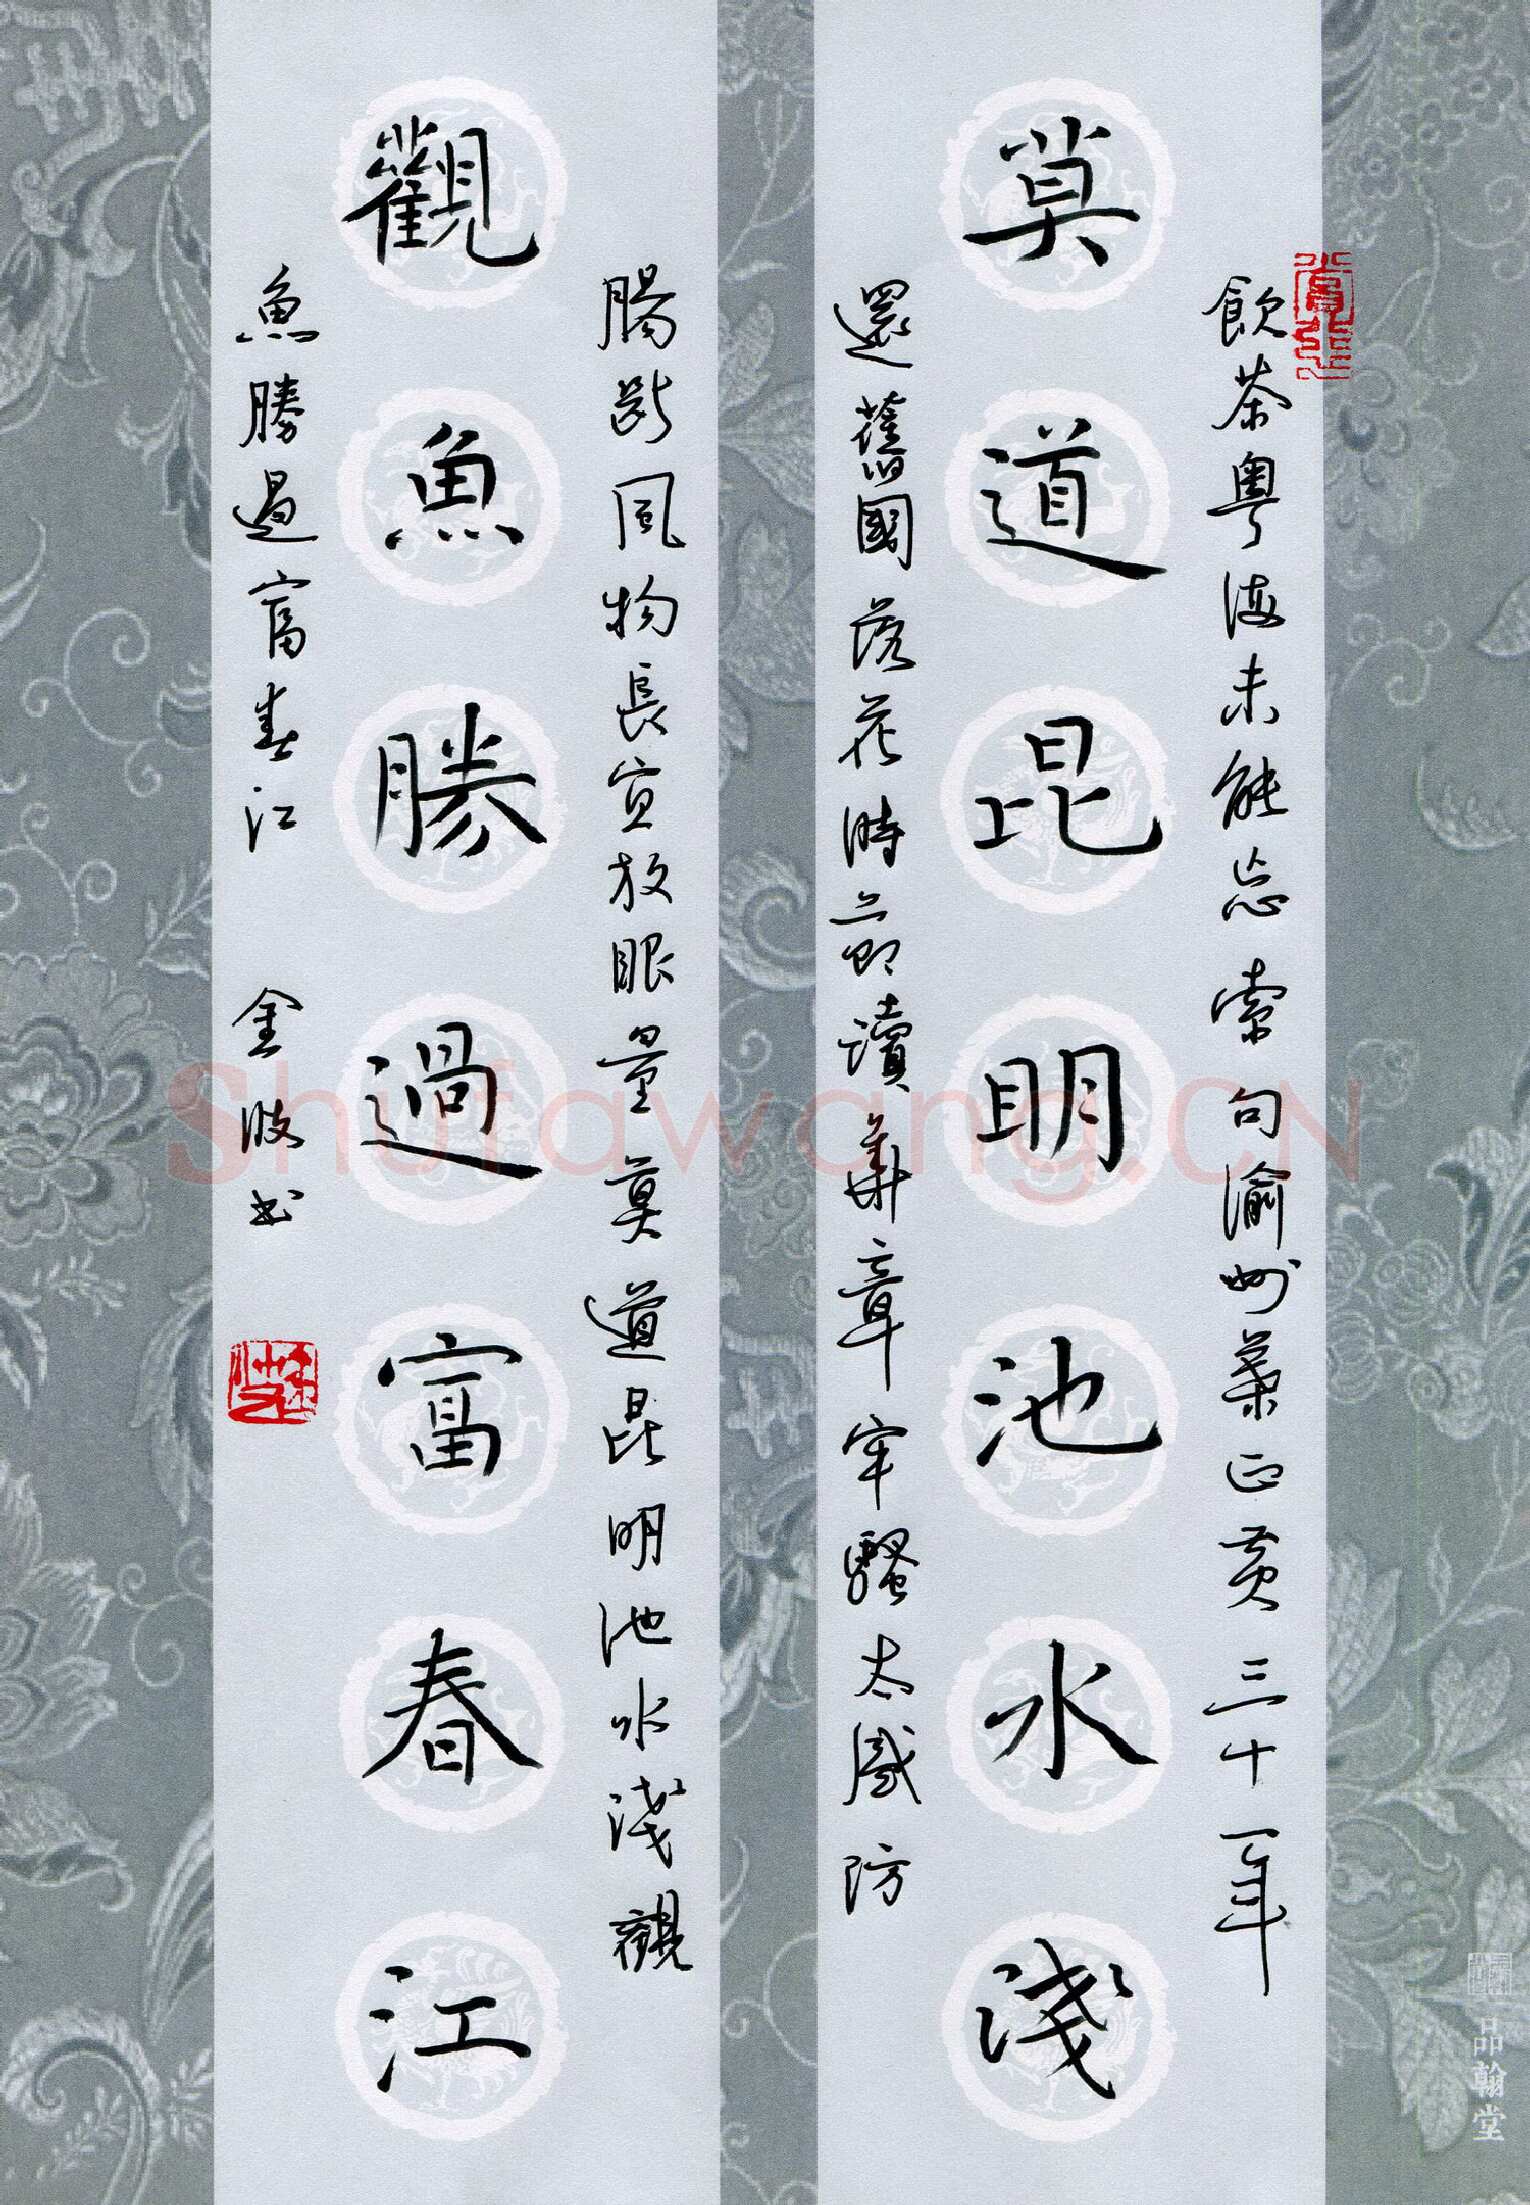 飲茶粵海未能忘索句渝州葉正黃三十一年
莫道昆明池水淺
還舊國落花時節讀華章牢騷太盛防
腸斷風物長宜放眼量莫道昆明池水淺觀
觀魚勝過富春江
魚勝過富春江 金波書
Shufawang.CN
品翰堂